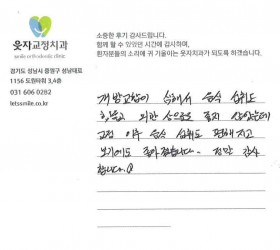 웃자교정치과
smile orthodontic clinic
경기도 성남시 중원구 성남대로
1156 도원타워 3,4층
031 606 0282
letssmile.co.kr
소중한 후기 감사드립니다.
함께 할 수 있었던 시간에 감사하며,
환자분들의 소리에 귀 기울이는 웃자치과가 되도록 하겠습니다.
개방교합이 심해서 음식 섭취도
힘들고 외관 상으로도 좋지 않았는데
교정 이후 음식 섭취도 편해지고
보기에도 좋아졌습니다. 정말 감사
합니다.